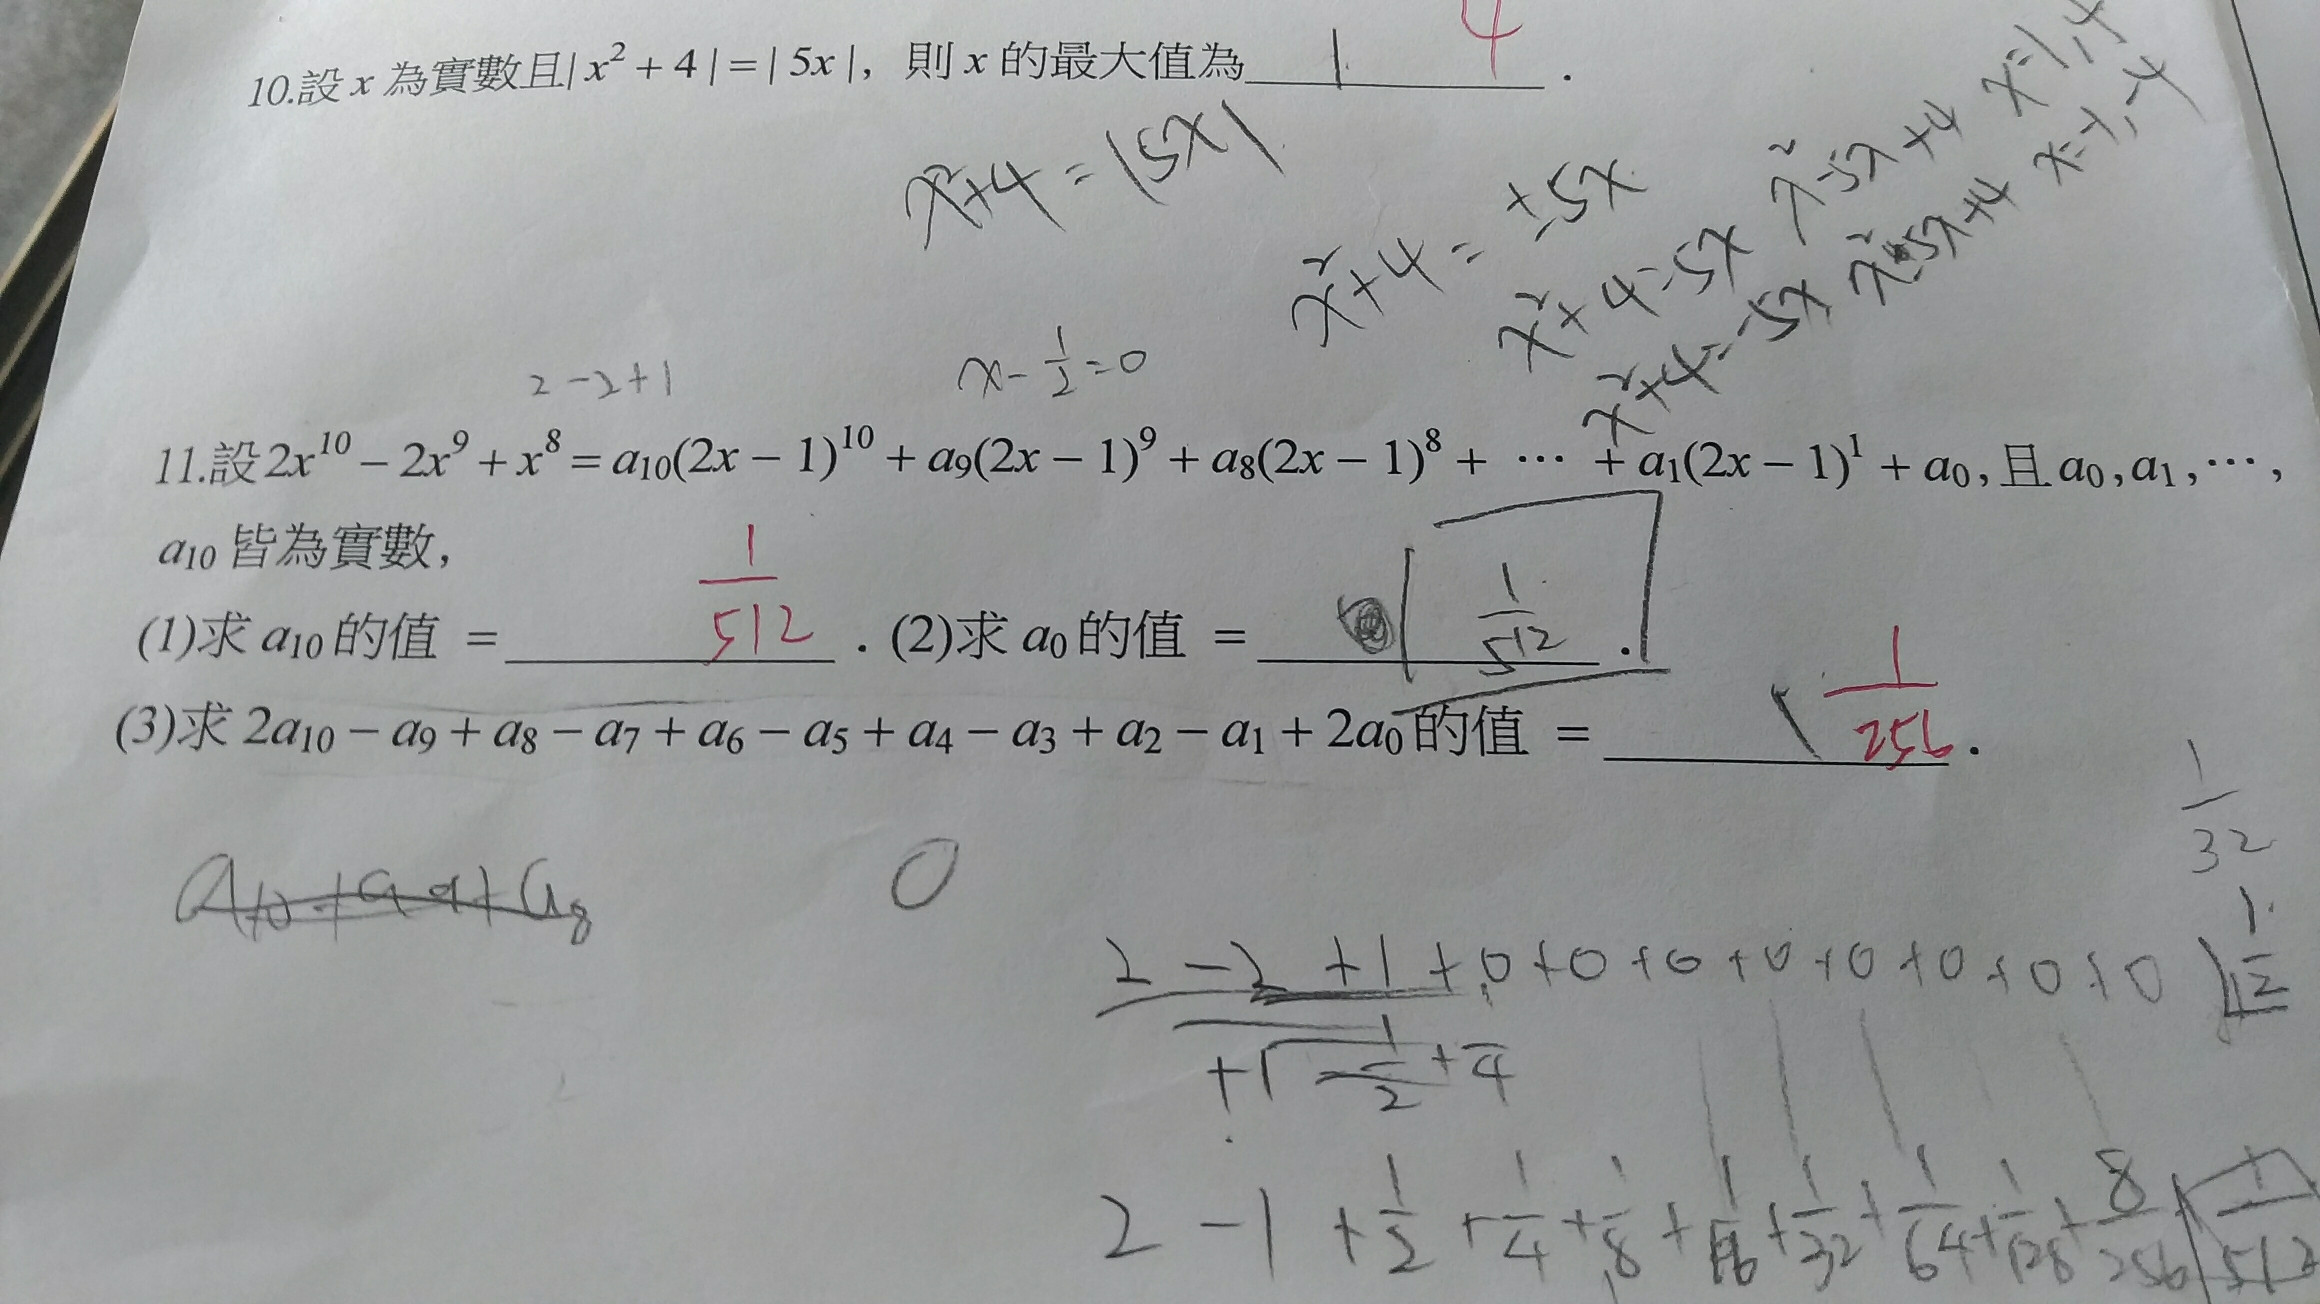 10.設 x 為實數且| x² + 4 | = | 5x |, 則 x 的最大值為 1 4 .
x²+4 = |5x|
x²+4 = ±5x
x²+4=5x x²-5x+4 x=1,4
x²+4=-5x x²-5x+4 x=-1,-4
2 -2 +1
x - 1/2 = 0
11.設 2x¹⁰ − 2x⁹ + x⁸ = a₁₀(2x − 1)¹⁰ + a₉(2x − 1)⁹ + a₈(2x − 1)⁸ + ⋯ + a₁(2x − 1)¹ + a₀, 且 a₀, a₁, ⋯,
a₁₀ 皆為實數,
(1)求 a₁₀ 的值 = 1/512 . (2)求 a₀ 的值 = 1/512 .
(3)求 2a₁₀ − a₉ + a₈ − a₇ + a₆ − a₅ + a₄ − a₃ + a₂ − a₁ + 2a₀ 的值 = 1/256 .
1/32
a₁₀+a₉+a₈
0
2 -2 +1 +0+0+0+0+0+0+0+0 1/2
+1 -1/2 +1/4
2 -1 +1/2 +1/4 +1/8 +1/16 +1/32 +1/64 +1/128 +8/256 1/512